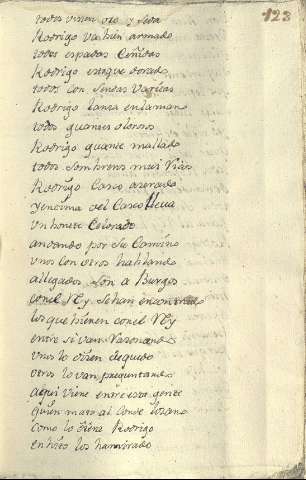 123
todos visten oro y seda
Rodrigo va bien armado
todos espadas ceñidas
Rodrigo estoque dorado
todos con sendas varicas
Rodrigo lanza en la mano
todos guantes olorosos
Rodrigo guante mallado
todos sombreros mui ricos
Rodrigo casco azerado
y encima del casco lleva
un bonete colorado
andando por su camino
unos con otros hablando
allegados son a Burgos
con el Rey se han encontrado
los que bienen con el Rey
entre si van razonando
unos lo dizen de quedo
otros lo van preguntando
aqui viene entre esta gente
quien mato al conde lozano
como lo oiera Rodrigo
en hito los ha mirado